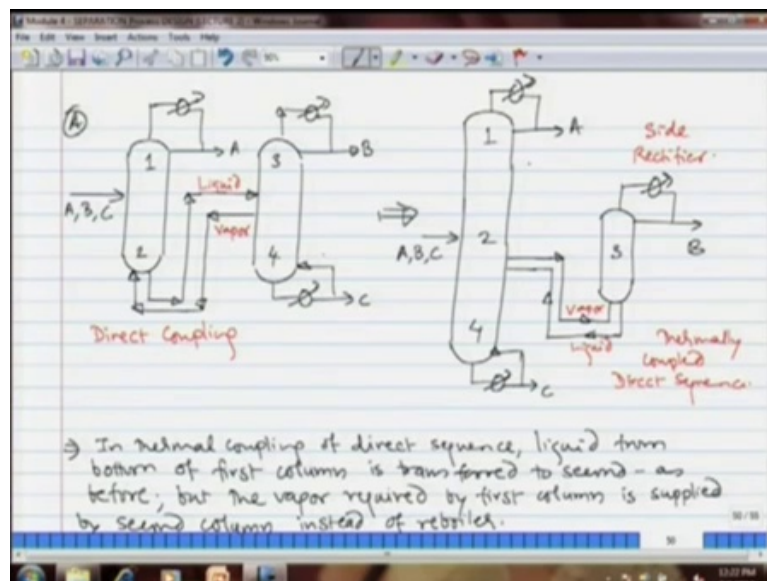 Module 4 - SEPARATION Process DESIGN (LECTURE 2) - Windows Journal
File Edit View Insert Actions Tools Help
90%
A
1
A
3
B
Liquid
A, B, C
Vapor
2
4
C
Direct Coupling
1
A
Side
Rectifier.
2
A, B, C
3
B
Vapor
Liquid
4
C
Thermally
Coupled
Direct Sequence.
⇒ In thermal coupling of direct sequence, liquid from
bottom of first column is transferred to second - as
before; but the vapor required by first column is supplied
by second column instead of reboiler.
50 / 55
50
12:22 PM